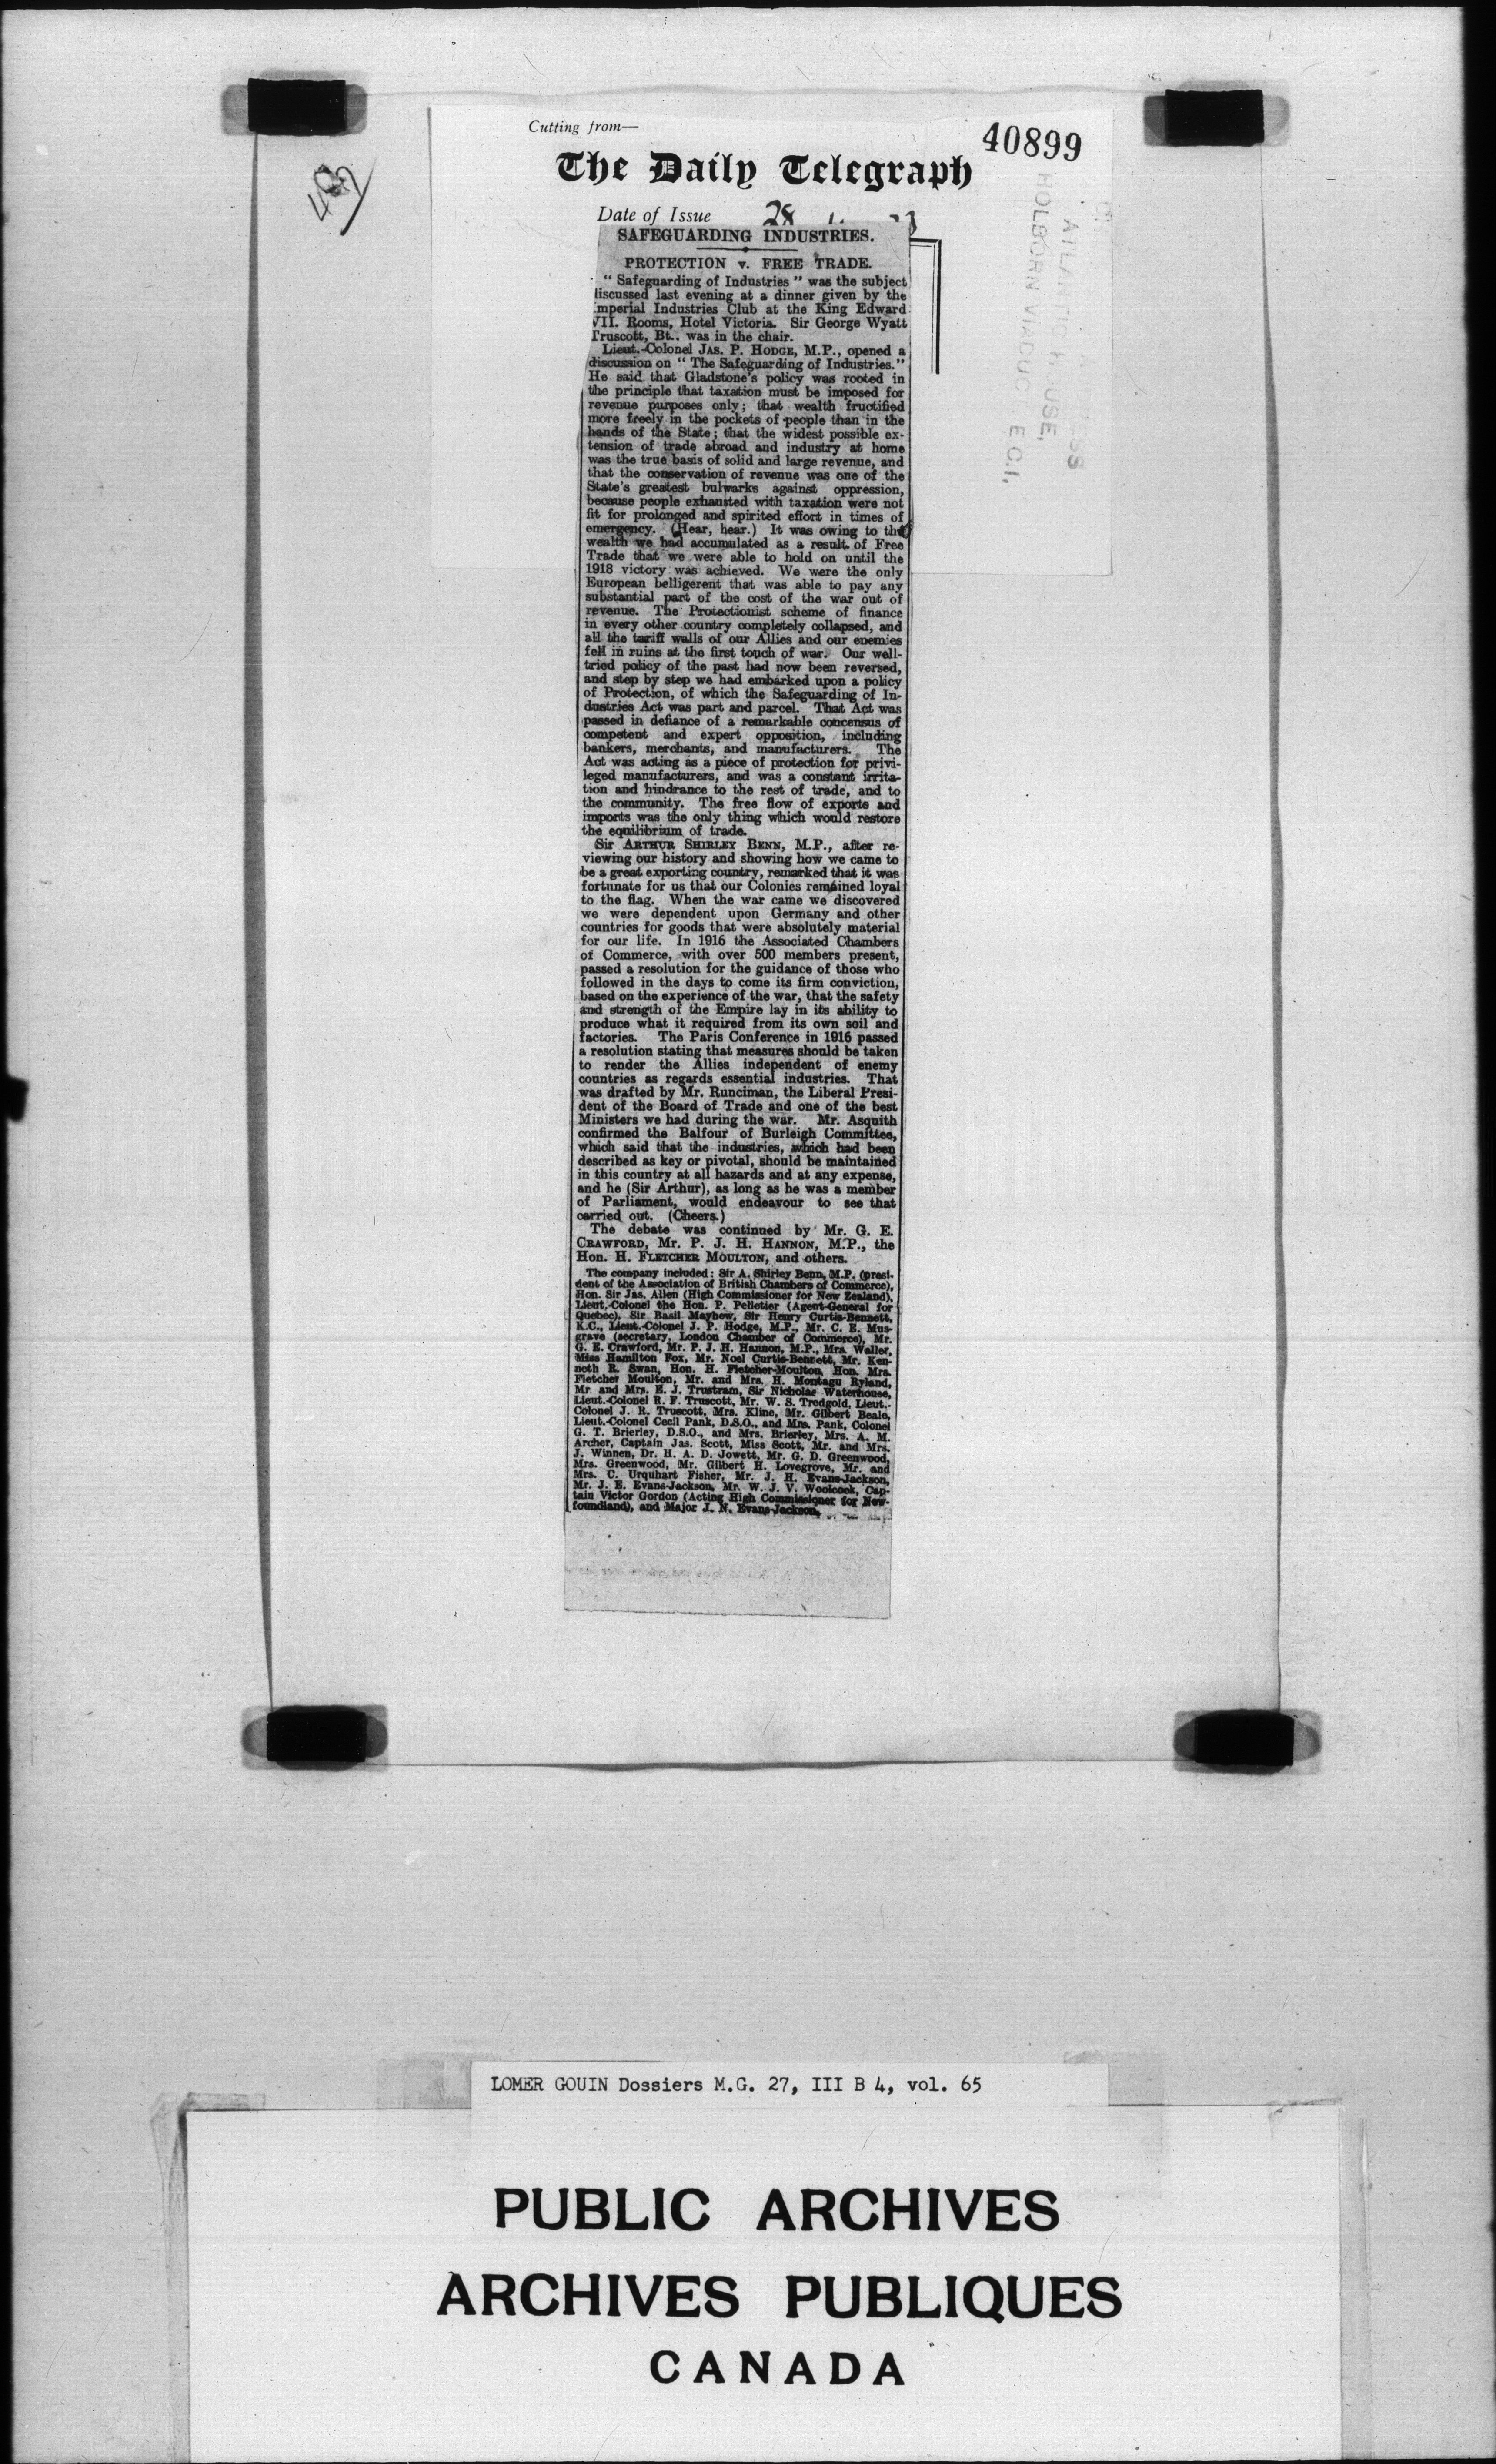 Cutting from—
40899
The Daily Telegraph
Date of Issue 28
HOLBORN VIADUCT E.C.1,
ATLANTIC HOUSE,
SAFEGUARDING INDUSTRIES.
PROTECTION v. FREE TRADE.
“ Safeguarding of Industries ” was the subject
liscussed last evening at a dinner given by the
mperial Industries Club at the King Edward
VII. Rooms, Hotel Victoria. Sir George Wyatt
Truscott, Bt., was in the chair.
Lieut.-Colonel JAS. P. HODGE, M.P., opened a
discussion on “ The Safeguarding of Industries.”
He said that Gladstone's policy was rooted in
the principle that taxation must be imposed for
revenue purposes only; that wealth fructified
more freely in the pockets of people than in the
hands of the State; that the widest possible ex-
tension of trade abroad and industry at home
was the true basis of solid and large revenue, and
that the conservation of revenue was one of the
State's greatest bulwarks against oppression,
because people exhausted with taxation were not
fit for prolonged and spirited effort in times of
emergency. (Hear, hear.) It was owing to the
wealth we had accumulated as a result of Free
Trade that we were able to hold on until the
1918 victory was achieved. We were the only
European belligerent that was able to pay any
substantial part of the cost of the war out of
revenue. The Protectionist scheme of finance
in every other country completely collapsed, and
all the tariff walls of our Allies and our enemies
fell in ruins at the first touch of war. Our well-
tried policy of the past had now been reversed,
and step by step we had embarked upon a policy
of Protection, of which the Safeguarding of In-
dustries Act was part and parcel. That Act was
passed in defiance of a remarkable concensus of
competent and expert opposition, including
bankers, merchants, and manufacturers. The
Act was acting as a piece of protection for privi-
leged manufacturers, and was a constant irrita-
tion and hindrance to the rest of trade, and to
the community. The free flow of exports and
imports was the only thing which would restore
the equilibrium of trade.
Sir ARTHUR SHIRLEY BENN, M.P., after re-
viewing our history and showing how we came to
be a great exporting country, remarked that it was
fortunate for us that our Colonies remained loyal
to the flag. When the war came we discovered
we were dependent upon Germany and other
countries for goods that were absolutely material
for our life. In 1916 the Associated Chambers
of Commerce, with over 500 members present,
passed a resolution for the guidance of those who
followed in the days to come its firm conviction,
based on the experience of the war, that the safety
and strength of the Empire lay in its ability to
produce what it required from its own soil and
factories. The Paris Conference in 1916 passed
a resolution stating that measures should be taken
to render the Allies independent of enemy
countries as regards essential industries. That
was drafted by Mr. Runciman, the Liberal Presi-
dent of the Board of Trade and one of the best
Ministers we had during the war. Mr. Asquith
confirmed the Balfour of Burleigh Committee,
which said that the industries, which had been
described as key or pivotal, should be maintained
in this country at all hazards and at any expense,
and he (Sir Arthur), as long as he was a member
of Parliament, would endeavour to see that
carried out. (Cheers.)
The debate was continued by Mr. G. E.
CRAWFORD, Mr. P. J. H. HANNON, M.P., the
Hon. H. FLETCHER MOULTON, and others.
The company included: Sir A. Shirley Benn, M.P. (presi-
dent of the Association of British Chambers of Commerce),
Hon. Sir Jas. Allen (High Commissioner for New Zealand),
Lieut.-Colonel the Hon. P. Pelletier (Agent-General for
Quebec), Sir Basil Mayhew, Sir Henry Curtis-Bennett,
K.C., Lieut.-Colonel J. P. Hodge, M.P., Mr. C. E. Mus-
grave (secretary, London Chamber of Commerce), Mr.
G. E. Crawford, Mr. P. J. H. Hannon, M.P., Mrs. Waller,
Miss Hamilton Fox, Mr. Noel Curtis-Bennett, Mr. Ken-
neth R. Swan, Hon. H. Fletcher-Moulton, Hon. Mrs.
Fletcher Moulton, Mr. and Mrs. H. Montagu Ryland,
Mr. and Mrs. E. J. Trustram, Sir Nicholas Waterhouse,
Lieut.-Colonel R. F. Truscott, Mr. W. S. Tredgold, Lieut.-
Colonel J. R. Truscott, Mrs. Kline, Mr. Gilbert Beale,
Lieut.-Colonel Cecil Pank, D.S.O., and Mrs. Pank, Colonel
G. T. Brierley, D.S.O., and Mrs. Brierley, Mrs. A. M.
Archer, Captain Jas. Scott, Miss Scott, Mr. and Mrs.
J. Winnen, Dr. H. A. D. Jowett, Mr. G. D. Greenwood,
Mrs. Greenwood, Mr. Gilbert H. Lovegrove, Mr. and
Mrs. C. Urquhart Fisher, Mr. J. H. Evans-Jackson,
Mr. J. E. Evans-Jackson, Mr. W. J. V. Woolcock, Cap-
tain Victor Gordon (Acting High Commissioner for New-
foundland), and Major J. N. Evans-Jackson.
LOMER GOUIN Dossiers M.G. 27, III B 4, vol. 65
PUBLIC ARCHIVES
ARCHIVES PUBLIQUES
CANADA